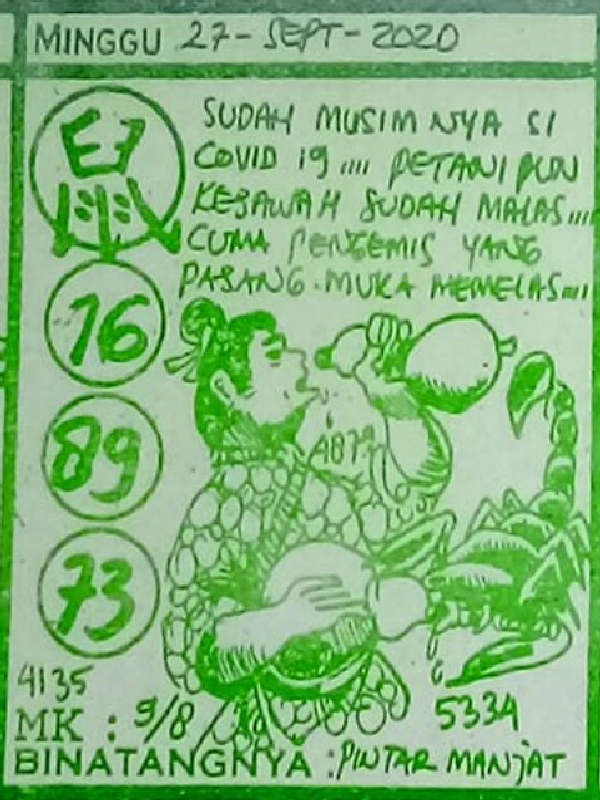 MINGGU 27-SEPT-2020
鼠
SUDAH MUSIM NYA SI
COVID 19.... PETANI PUN
KESAWAH SUDAH MALAS....
CUMA PENGEMIS YANG
PASANG MUKA MEMELAS....
76
89
73
4135
5334
MK : 9/8
BINATANGNYA : PINTAR MANJAT